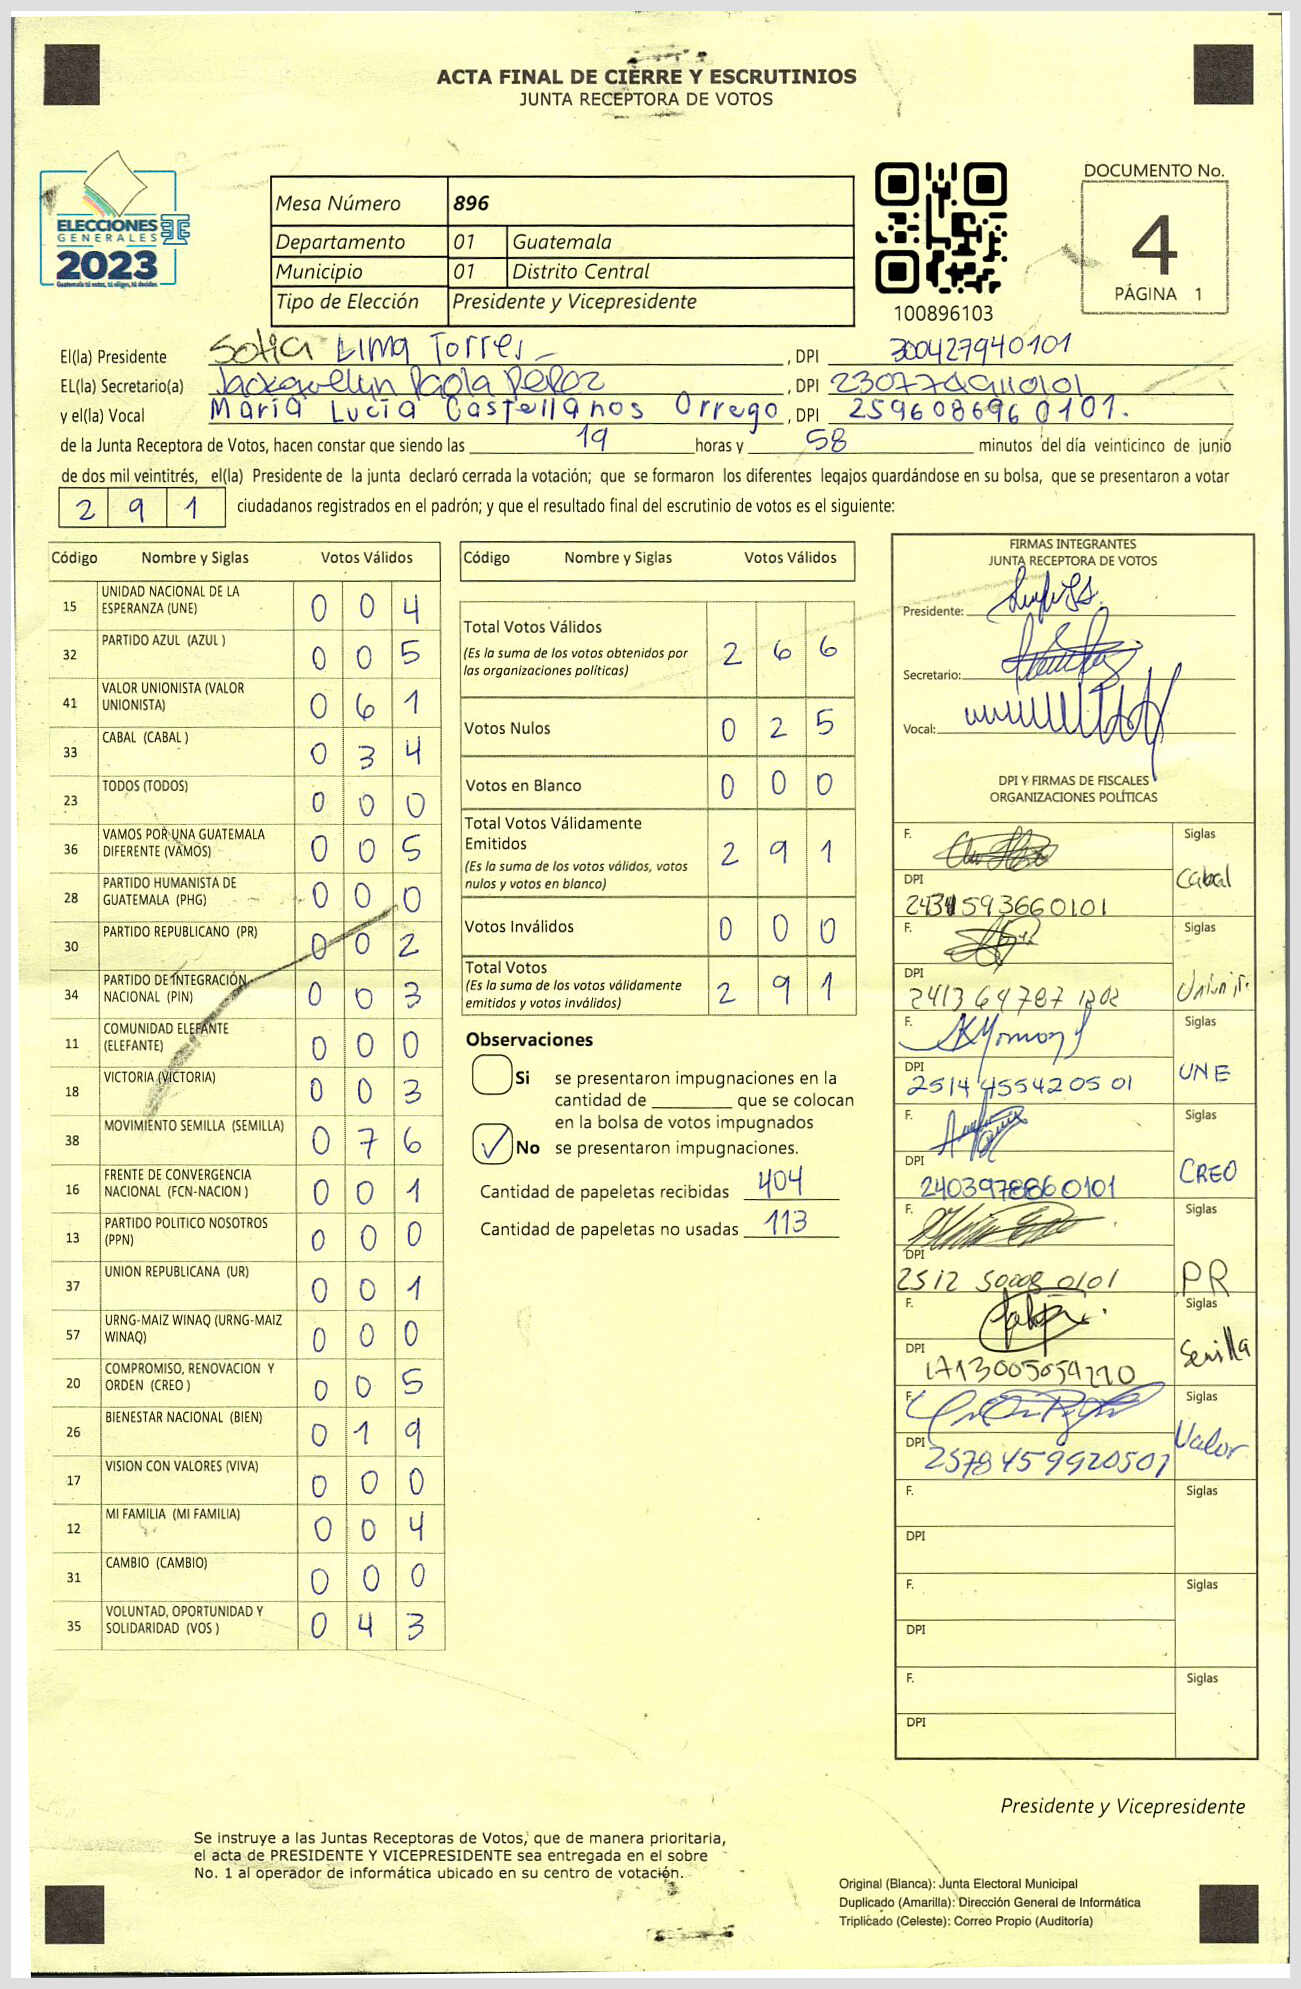 ACTA FINAL DE CIERRE Y ESCRUTINIOS
JUNTA RECEPTORA DE VOTOS
ELECCIONES
GENERALES
2023
Guatemala tú votas, tú eliges, tú decides
Mesa Número 896
Departamento 01 Guatemala
Municipio 01 Distrito Central
Tipo de Elección Presidente y Vicepresidente
100896103
DOCUMENTO No.
4
PÁGINA 1
El(la) Presidente Sofia Lima Torres , DPI 300427940101
EL(la) Secretario(a) Jackquelyn Paola Perez , DPI
y el(la) Vocal María Lucía Castellanos Orrego , DPI 2596086960101.
de la Junta Receptora de Votos, hacen constar que siendo las 19 horas y 58 minutos del día veinticinco de junio
de dos mil veintitrés, el(la) Presidente de la junta declaró cerrada la votación; que se formaron los diferentes legajos guardándose en su bolsa, que se presentaron a votar
2 9 1 ciudadanos registrados en el padrón; y que el resultado final del escrutinio de votos es el siguiente:
Código Nombre y Siglas Votos Válidos
15 UNIDAD NACIONAL DE LA ESPERANZA (UNE) 0 0 4
32 PARTIDO AZUL (AZUL ) 0 0 5
41 VALOR UNIONISTA (VALOR UNIONISTA) 0 6 1
33 CABAL (CABAL ) 0 3 4
23 TODOS (TODOS) 0 0 0
36 VAMOS POR UNA GUATEMALA DIFERENTE (VAMOS) 0 0 5
28 PARTIDO HUMANISTA DE GUATEMALA (PHG) 0 0 0
30 PARTIDO REPUBLICANO (PR) 0 0 2
34 PARTIDO DE INTEGRACIÓN NACIONAL (PIN) 0 0 3
11 COMUNIDAD ELEFANTE (ELEFANTE) 0 0 0
18 VICTORIA (VICTORIA) 0 0 3
38 MOVIMIENTO SEMILLA (SEMILLA) 0 7 6
16 FRENTE DE CONVERGENCIA NACIONAL (FCN-NACION ) 0 0 1
13 PARTIDO POLITICO NOSOTROS (PPN) 0 0 0
37 UNION REPUBLICANA (UR) 0 0 1
57 URNG-MAIZ WINAQ (URNG-MAIZ WINAQ) 0 0 0
20 COMPROMISO, RENOVACION Y ORDEN (CREO ) 0 0 5
26 BIENESTAR NACIONAL (BIEN) 0 1 9
17 VISION CON VALORES (VIVA) 0 0 0
12 MI FAMILIA (MI FAMILIA) 0 0 4
31 CAMBIO (CAMBIO) 0 0 0
35 VOLUNTAD, OPORTUNIDAD Y SOLIDARIDAD (VOS ) 0 4 3
Código Nombre y Siglas Votos Válidos
Total Votos Válidos 2 6 6
(Es la suma de los votos obtenidos por
las organizaciones políticas)
Votos Nulos 0 2 5
Votos en Blanco 0 0 0
Total Votos Válidamente
Emitidos 2 9 1
(Es la suma de los votos válidos, votos
nulos y votos en blanco)
Votos Inválidos 0 0 0
Total Votos 2 9 1
(Es la suma de los votos válidamente
emitidos y votos inválidos)
Observaciones
Si se presentaron impugnaciones en la
cantidad de ________ que se colocan
en la bolsa de votos impugnados
No se presentaron impugnaciones.
Cantidad de papeletas recibidas 404
Cantidad de papeletas no usadas 113
FIRMAS INTEGRANTES
JUNTA RECEPTORA DE VOTOS
Presidente:
Secretario:
Vocal:
DPI Y FIRMAS DE FISCALES
ORGANIZACIONES POLÍTICAS
F. Siglas
DPI Cabal
F. Siglas
DPI
2413 64787 1202
F. Siglas
DPI UNE
2514 45542 05 01
F. Siglas
DPI CREO
2403978860101
F. Siglas
DPI PR
2512 50008 0101
F. Siglas
DPI Semilla
F. Siglas
DPI Valor
2578459920501
F. Siglas
DPI
F. Siglas
DPI
F. Siglas
DPI
Presidente y Vicepresidente
Se instruye a las Juntas Receptoras de Votos, que de manera prioritaria,
el acta de PRESIDENTE Y VICEPRESIDENTE sea entregada en el sobre
No. 1 al operador de informática ubicado en su centro de votación.
Original (Blanca): Junta Electoral Municipal
Duplicado (Amarilla): Dirección General de Informática
Triplicado (Celeste): Correo Propio (Auditoría)